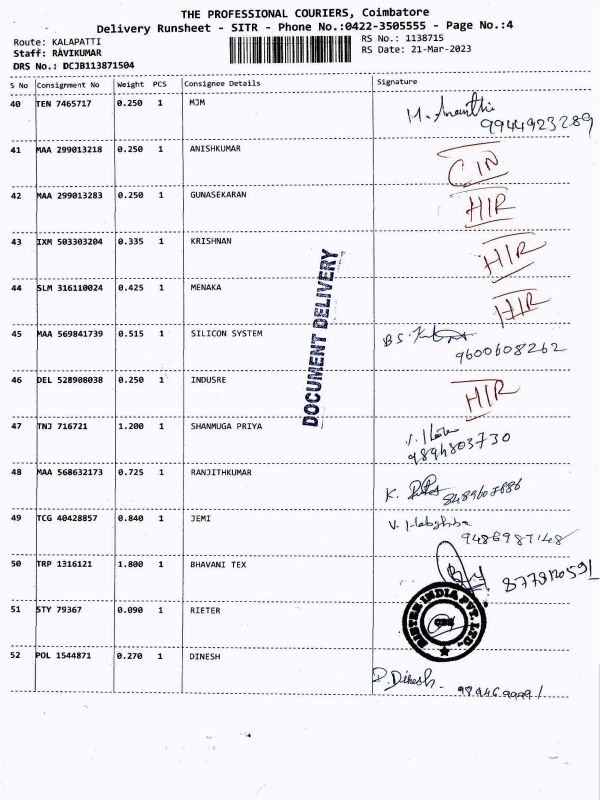 THE PROFESSIONAL COURIERS, Coimbatore
Delivery Runsheet - SITR - Phone No.:0422-3505555 - Page No.:4
Route: KALAPATTI
RS No.: 1138715
Staff: RAVIKUMAR
RS Date: 21-Mar-2023
DRS No.: DCJB113871504
S No Consignment No Weight PCS Consignee Details Signature
40 TEN 7465717 0.250 1 MJM M. Ananthi
9944923289
41 MAA 299013218 0.250 1 ANISHKUMAR CIN
42 MAA 299013283 0.250 1 GUNASEKARAN HIR
43 IXM 503303204 0.335 1 KRISHNAN HIR
44 SLM 316110024 0.425 1 MENAKA HIR
45 MAA 569841739 0.515 1 SILICON SYSTEM B.S.
9600608262
46 DEL 528908038 0.250 1 INDUSRE HIR
47 TNJ 716721 1.200 1 SHANMUGA PRIYA
9894803730
48 MAA 568632173 0.725 1 RANJITHKUMAR K.
49 TCG 40428857 0.840 1 JEMI V.
9486987148
50 TRP 1316121 1.800 1 BHAVANI TEX
51 STY 79367 0.090 1 RIETER
RIETER INDIA PVT. LTD.
CBE
52 POL 1544871 0.270 1 DINESH D. Dinesh
DOCUMENT DELIVERY